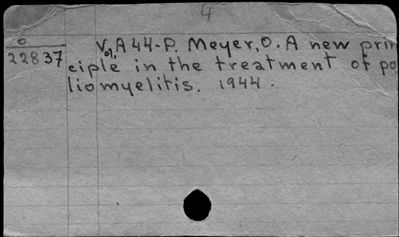 4
O
22837
Vol, A44-P. Meyer, O. A new prin
ciple in the treatment of po
liomyelitis. 1944.